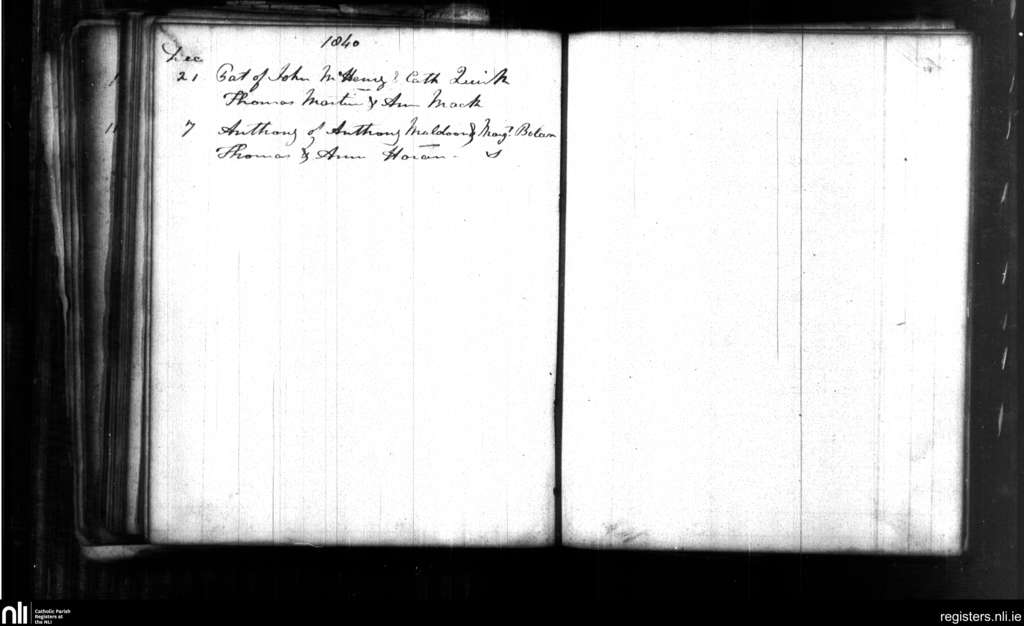 1840
Dec
21 Pat of John McHenry & Cath Quirk
Thomas Martin & Ann Mack
7 Anthony of Anthony Muldoon & Margt
Thomas & Ann Horan
nli Catholic Parish
Registers at
the NLI
registers.nli.ie